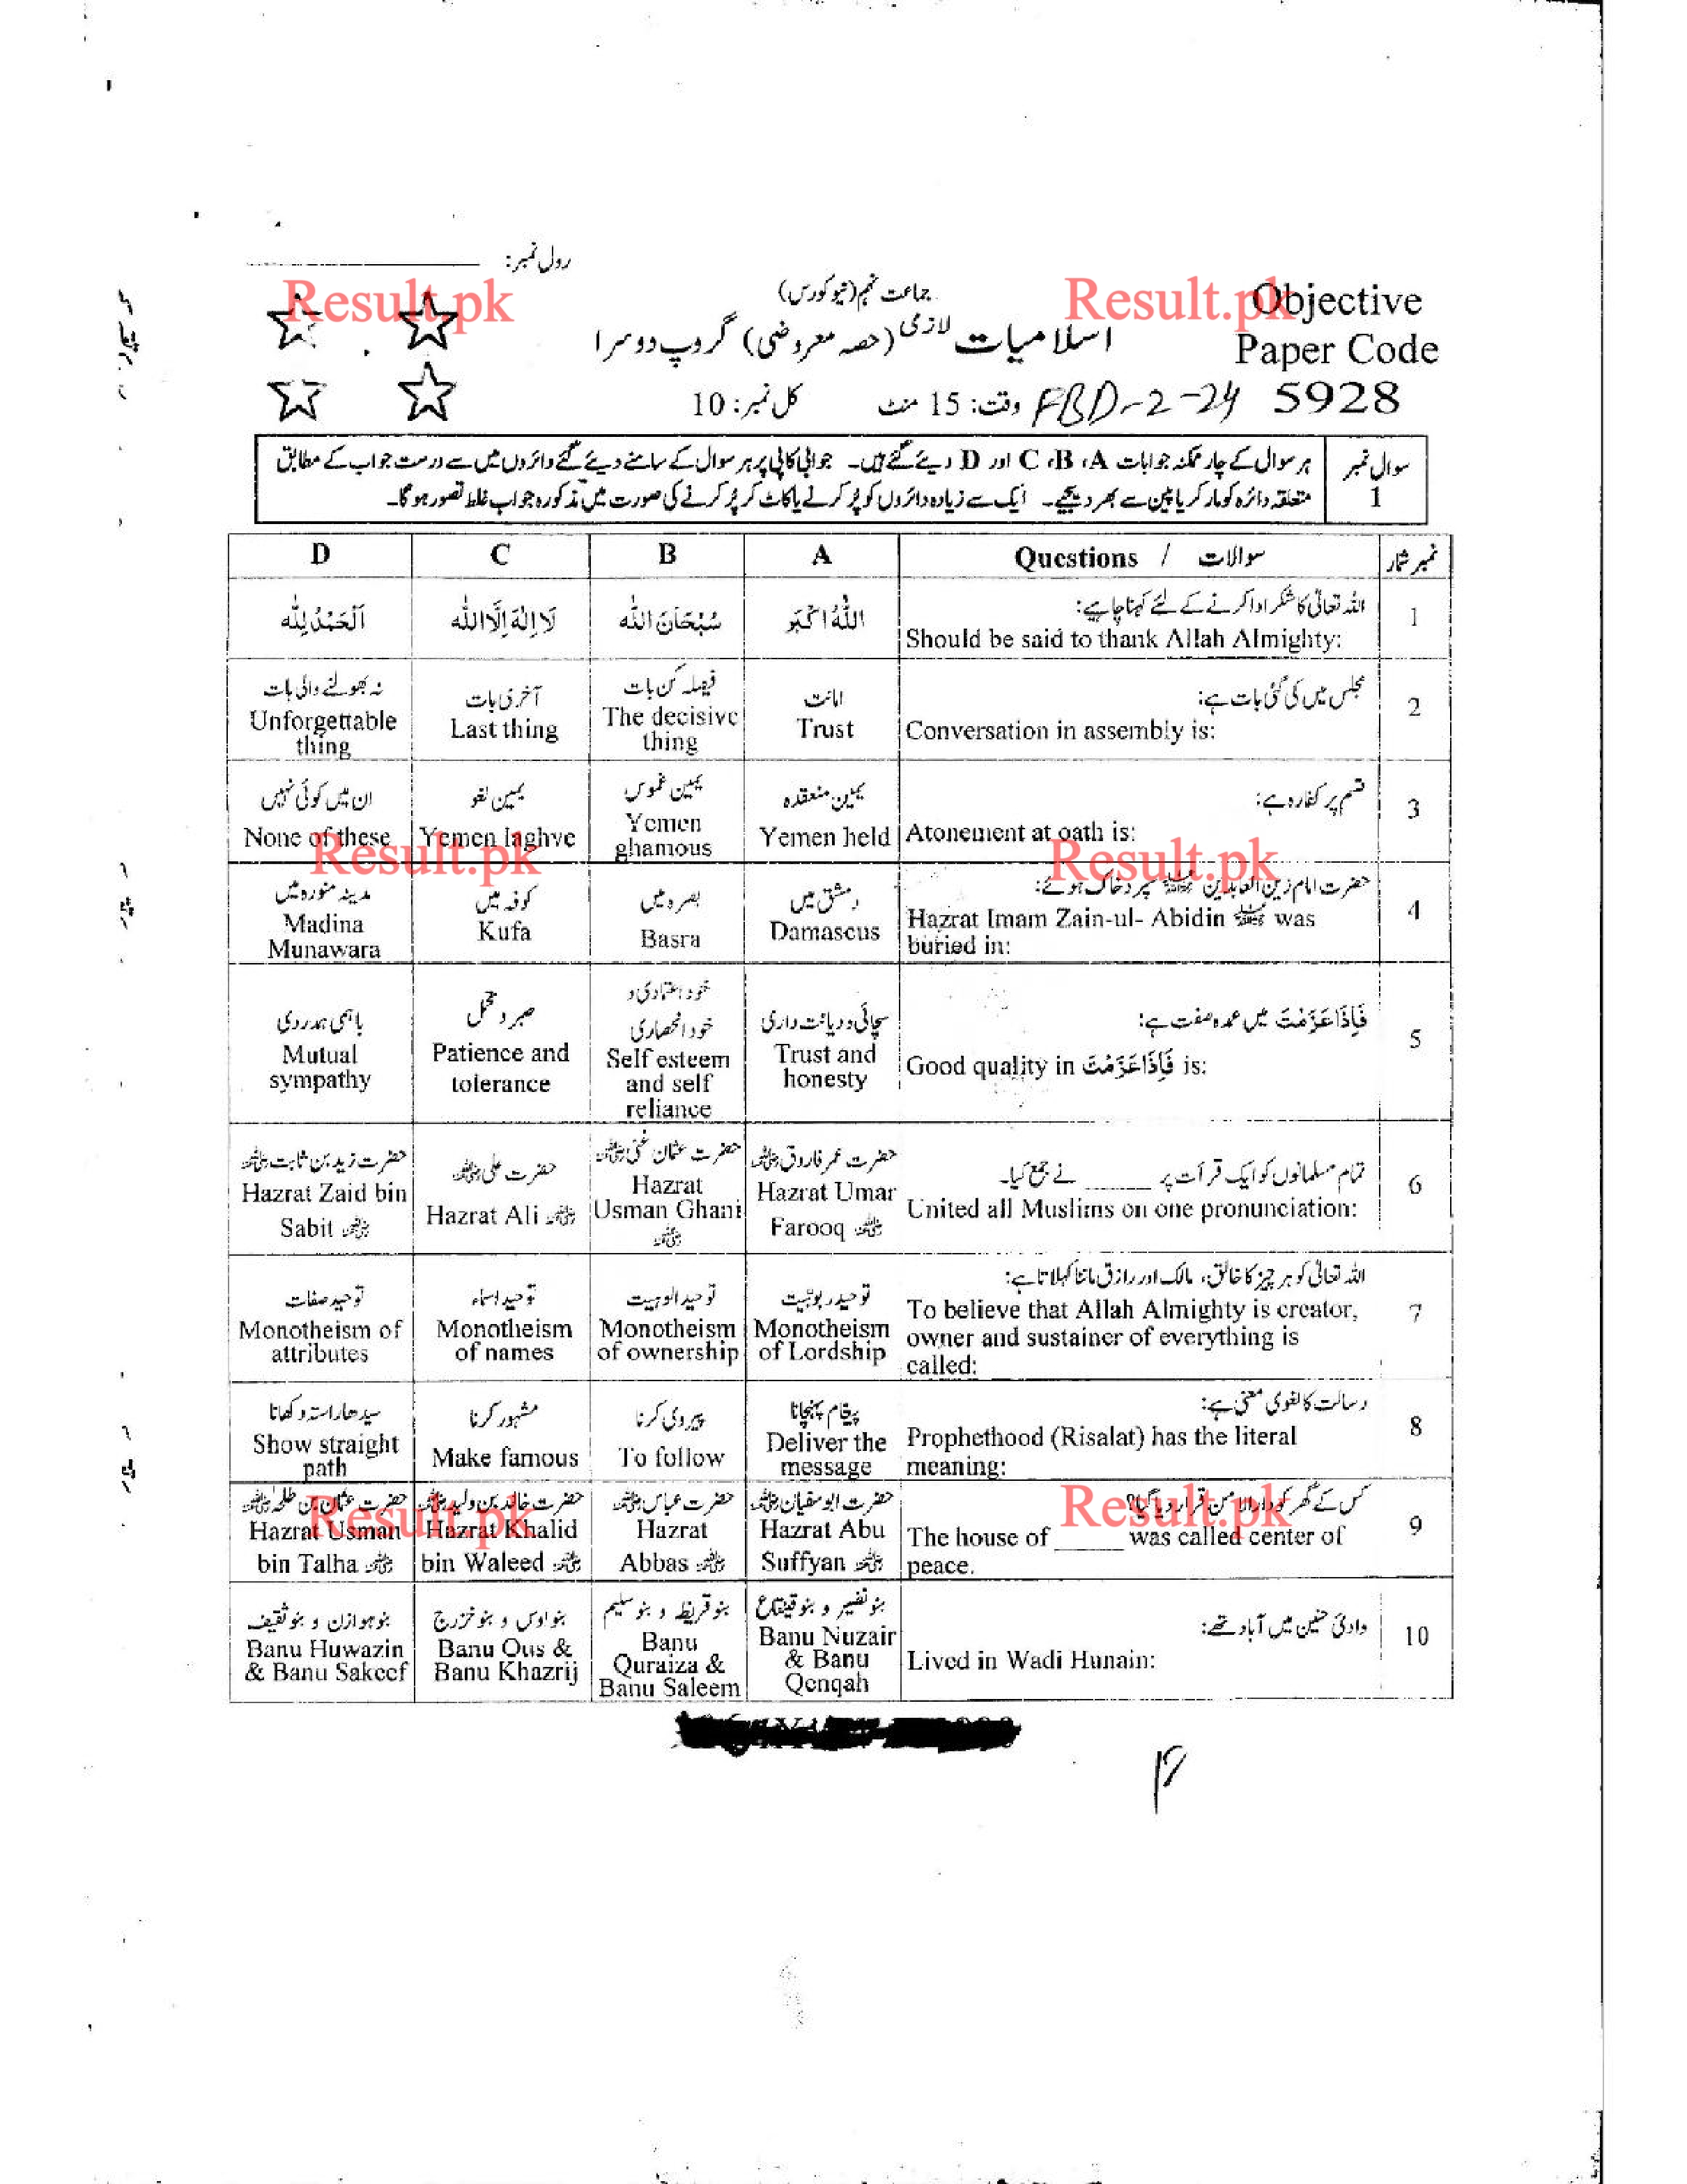 رول نمبر:
Result.pk
Result.pk
جماعت نہم (نیو کورس)
Objective
اسلامیات لازمی (حصہ معروضی) گروپ دوسرا
Paper Code
کل نمبر: 10
وقت: 15 منٹ
FBD-2-24
5928
سوال نمبر 1
ہر سوال کے چار ممکنہ جوابات A، B، C اور D دیئے گئے ہیں۔ جوابی کاپی پر ہر سوال کے سامنے دیئے گئے دائروں میں سے درست جواب کے مطابق
متعلقہ دائرہ کو مارکر یا پین سے بھر دیجیے۔ ایک سے زیادہ دائروں کو پُر کرنے یا کاٹ کر پُر کرنے کی صورت میں مذکورہ جواب غلط تصور ہوگا۔
نمبر شمار
Questions / سوالات
A
B
C
D
1
اللہ تعالیٰ کا شکر ادا کرنے کے لئے کہنا چاہیے:
Should be said to thank Allah Almighty:
اَللّٰهُ اَكْبَر
سُبْحَانَ اللّٰه
لَا اِلٰهَ اِلَّا اللّٰه
اَلْحَمْدُ لِلّٰه
2
مجلس میں کی گئی بات ہے:
Conversation in assembly is:
امانت
Trust
فیصلہ کن بات
The decisive
thing
آخری بات
Last thing
نہ بھولنے والی بات
Unforgettable
thing
3
قسم پر کفارہ ہے:
Atonement at oath is:
یمین منعقدہ
Yemen held
یمین غموس
Yemen
ghamous
یمین لغو
Yemen laghve
ان میں کوئی نہیں
None of these
Result.pk
Result.pk
4
حضرت امام زین العابدین سپرد خاک ہوئے:
Hazrat Imam Zain-ul- Abidin was
buried in:
دمشق میں
Damascus
بصرہ میں
Basra
کوفہ میں
Kufa
مدینہ منورہ میں
Madina
Munawara
5
فَاِذَا عَزَمْتَ میں عمدہ صفت ہے:
Good quality in فَاِذَا عَزَمْتَ is:
سچائی و دیانت داری
Trust and
honesty
خود اعتمادی و
خود انحصاری
Self esteem
and self
reliance
صبر و تحمل
Patience and
tolerance
باہمی ہمدردی
Mutual
sympathy
6
تمام مسلمانوں کو ایک قرآت پر ______ نے جمع کیا۔
United all Muslims on one pronunciation:
حضرت عمر فاروق رضی اللہ عنہ
Hazrat Umar
Farooq رضی اللہ عنہ
حضرت عثمان غنی رضی اللہ عنہ
Hazrat
Usman Ghani
رضی اللہ عنہ
حضرت علی رضی اللہ عنہ
Hazrat Ali رضی اللہ عنہ
حضرت زید بن ثابت رضی اللہ عنہ
Hazrat Zaid bin
Sabit رضی اللہ عنہ
7
اللہ تعالیٰ کو ہر چیز کا خالق، مالک اور رازق ماننا کہلاتا ہے:
To believe that Allah Almighty is creator,
owner and sustainer of everything is
called:
توحید ربوبیت
Monotheism
of Lordship
توحید الوہیت
Monotheism
of ownership
توحید اسماء
Monotheism
of names
توحید صفات
Monotheism of
attributes
8
رسالت کا لغوی معنی ہے:
Prophethood (Risalat) has the literal
meaning:
پیغام پہنچانا
Deliver the
message
پیروی کرنا
To follow
مشہور کرنا
Make famous
سیدھا راستہ دکھانا
Show straight
path
9
کس کے گھر کو دارالامن قرار دیا گیا؟
The house of ______ was called center of
peace.
حضرت ابوسفیان رضی اللہ عنہ
Hazrat Abu
Suffyan رضی اللہ عنہ
حضرت عباس رضی اللہ عنہ
Hazrat
Abbas رضی اللہ عنہ
حضرت خالد بن ولید رضی اللہ عنہ
Hazrat Khalid
bin Waleed رضی اللہ عنہ
حضرت عثمان بن طلحہ رضی اللہ عنہ
Hazrat Usman
bin Talha رضی اللہ عنہ
Result.pk
Result.pk
10
وادی حنین میں آباد تھے:
Lived in Wadi Hunain:
بنو نضیر و بنو قینقاع
Banu Nuzair
& Banu
Qenqah
بنو قریظہ و بنو سلیم
Banu
Quraiza &
Banu Saleem
بنو اوس و بنو خزرج
Banu Ous &
Banu Khazrij
بنو ہوازن و بنو ثقیف
Banu Huwazin
& Banu Sakeef